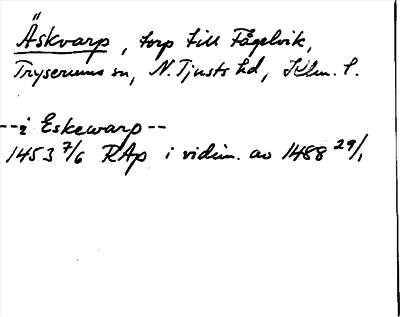 Äskvarp, torp till Fågelvik,
Tryserums sn, N. Tjusts hd, Klm. l.
--i Eskewarp--
1453 7/6 RAp i vidim. av 1488 29/1